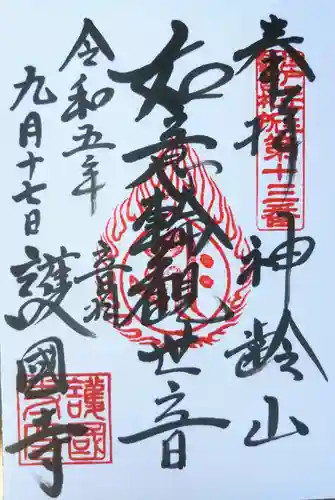 奉拝 神齢山
第十三番
如意輪観世音
音羽
護國寺
令和五年
九月十七日
護國